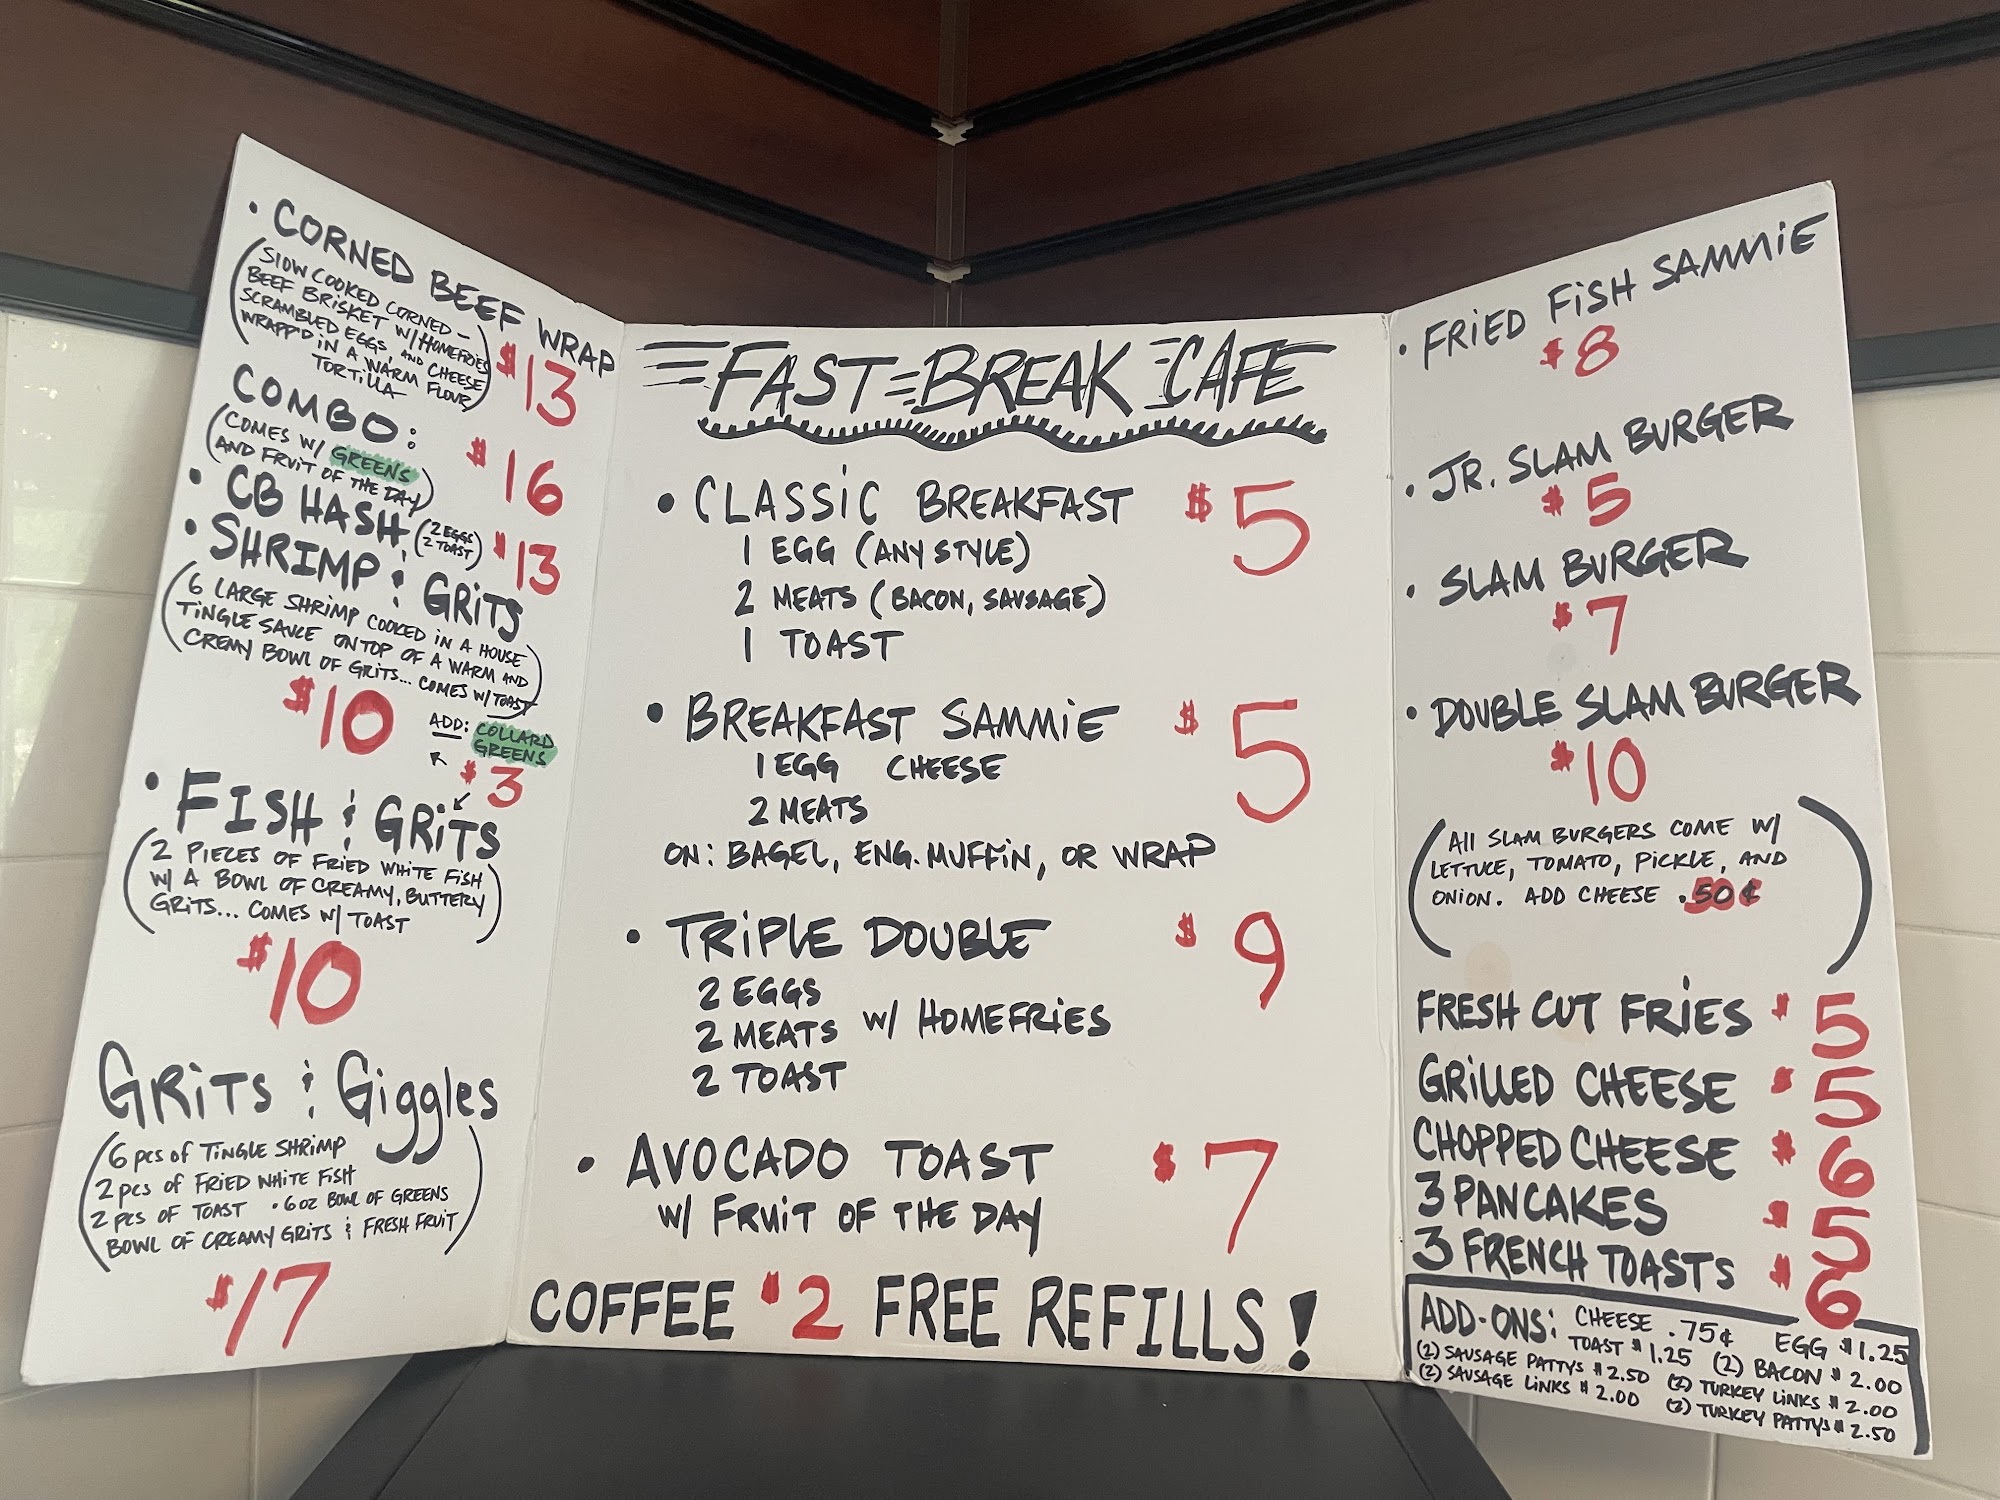 • CORNED BEEF WRAP
(SLOW COOKED CORNED-
BEEF BRISKET W/ HOMEFRIES
SCRAMBLED EGGS, AND CHEESE
WRAPP'D IN A WARM FLOUR)
TORTILLA
$13
COMBO:
(COMES W/ GREENS
AND FRUIT OF THE DAY)
$16
• CB HASH (2 EGGS
2 TOAST) $13
• SHRIMP & GRITS
(6 LARGE SHRIMP COOKED IN A HOUSE
TINGLE SAUCE ON TOP OF A WARM AND
CREMY BOWL OF GRITS... COMES W/ TOAST)
$10
ADD: COLLARD
GREENS
$3
• FISH & GRITS
(2 PIECES OF FRIED WHITE FISH
W/ A BOWL OF CREAMY, BUTTERY
GRITS... COMES W/ TOAST)
$10
GRITS & Giggles
(6 pcs of TINGLE SHRIMP
2 pcs of FRIED WHITE FISH
2 pcs OF TOAST • 6 oz BOWL OF GREENS
BOWL OF CREAMY GRITS & FRESH FRUIT)
$17
FAST BREAK CAFE
• CLASSIC BREAKFAST $5
1 EGG (ANY STYLE)
2 MEATS (BACON, SAUSAGE)
1 TOAST
• BREAKFAST SAMMIE $5
1 EGG CHEESE
2 MEATS
ON: BAGEL, ENG. MUFFIN, OR WRAP
• TRIPLE DOUBLE $9
2 EGGS
2 MEATS W/ HOMEFRIES
2 TOAST
• AVOCADO TOAST $7
W/ FRUIT OF THE DAY
COFFEE $2 FREE REFILLS!
• FRIED FISH SAMMIE
$8
• JR. SLAM BURGER
$5
• SLAM BURGER
$7
• DOUBLE SLAM BURGER
$10
(All SLAM BURGERS COME W/
LETTUCE, TOMATO, PICKLE, AND
ONION. ADD CHEESE .50¢)
FRESH CUT FRIES $5
GRILLED CHEESE $5
CHOPPED CHEESE $6
3 PANCAKES $5
3 FRENCH TOASTS $6
ADD-ONS: CHEESE .75¢ EGG $1.25
TOAST $1.25 (2) BACON $2.00
(2) SAUSAGE PATTYS $2.50 (2) TURKEY LINKS $2.00
(2) SAUSAGE LINKS $2.00 (2) TURKEY PATTYS $2.50